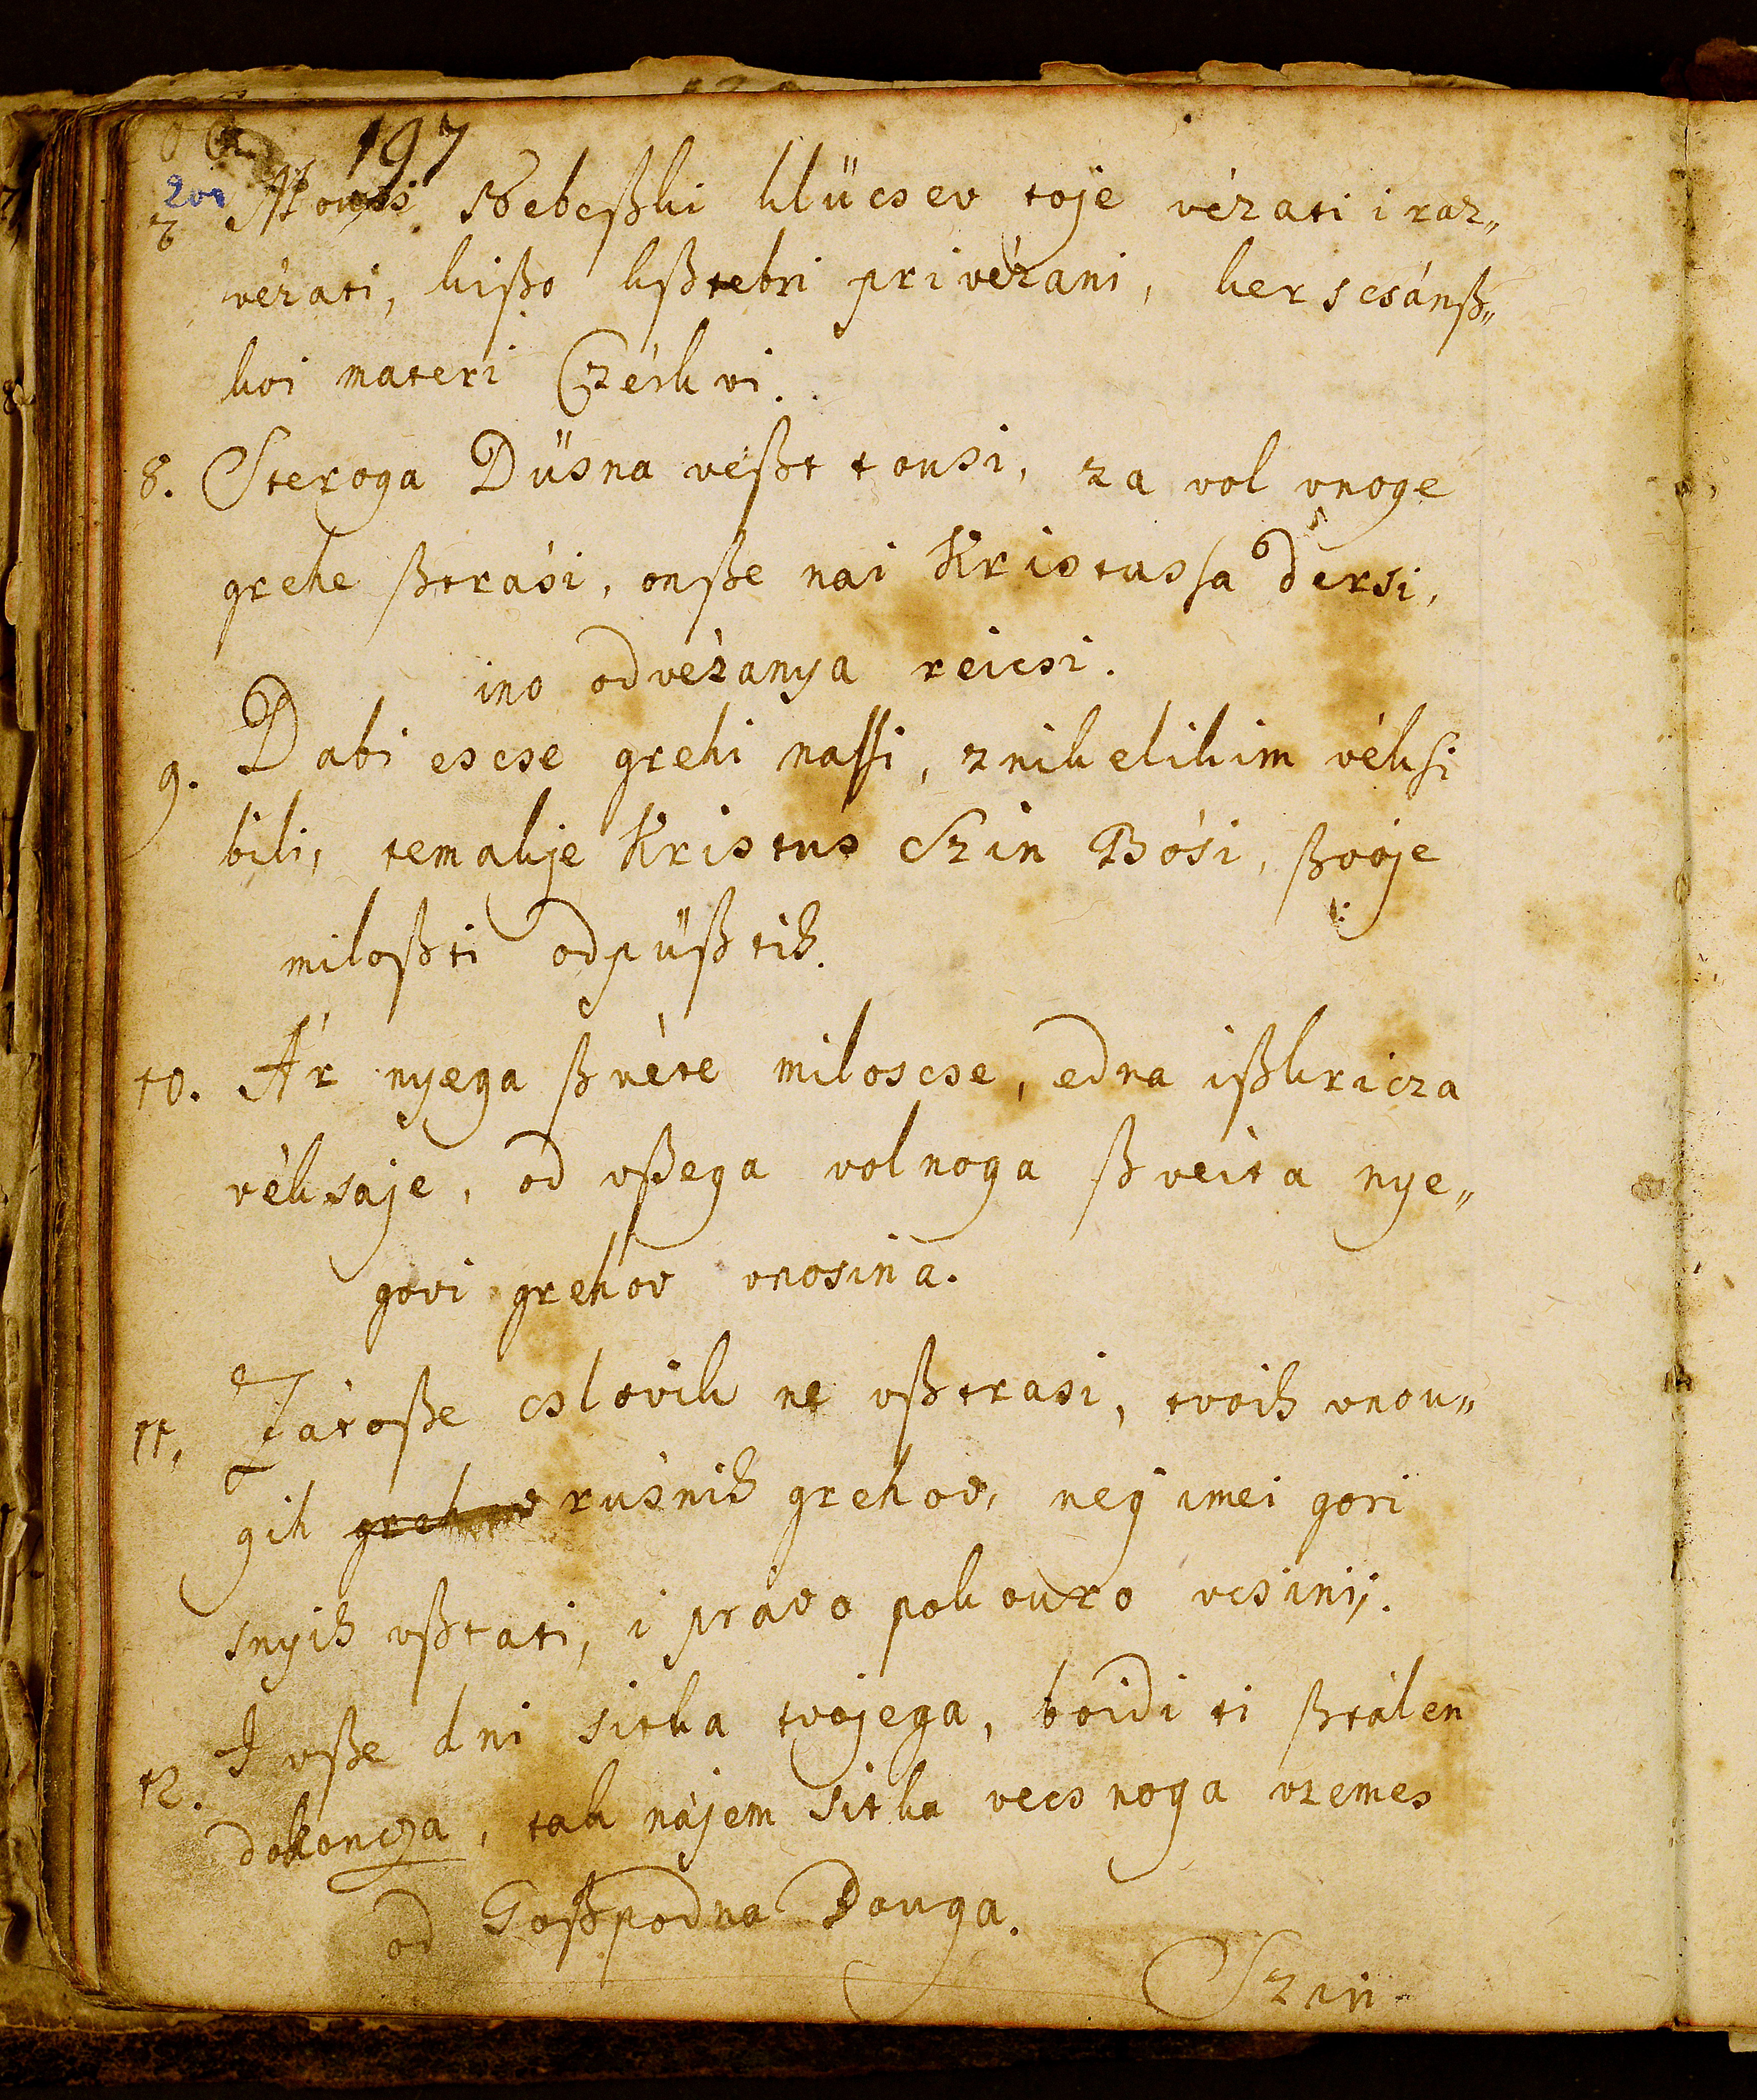 197
200
7 Mocsi Nebeßki klücsev toje vézati i raz„
vézati, kißo kßtebri privézani, kerscsánß„
koi materi Czérkvi.
8. Steroga Düsna veßt tousi, za vol vnoge
grehe ßtrási, onße nai Kristussa dersi,
ino odvézanya réicsi.
9. Dabi escse grehi nassi, znikelikim véksi
bili, temakje Kristus Szin Bósi, ßvoje
miloßti odpüßtih.
10. Ár nyega ßvéte miloscse, edna ißkricza
véksaje, od vßega volnoga ßveita nye„
govi grehov vnosina.
11, Zátoße cslovik ne vßtrasi, tvoih vnou„
gih grehov rúsnih grehov, neg imei gori
snyih vßtati, i právo pokouro vcsinij.
12. I vße dni sitka tvojega, boidi ti ßtálen
dokoncza, tak nájem sitka vecsnoga vzemes
od Goßpodna Bouga.
Szin